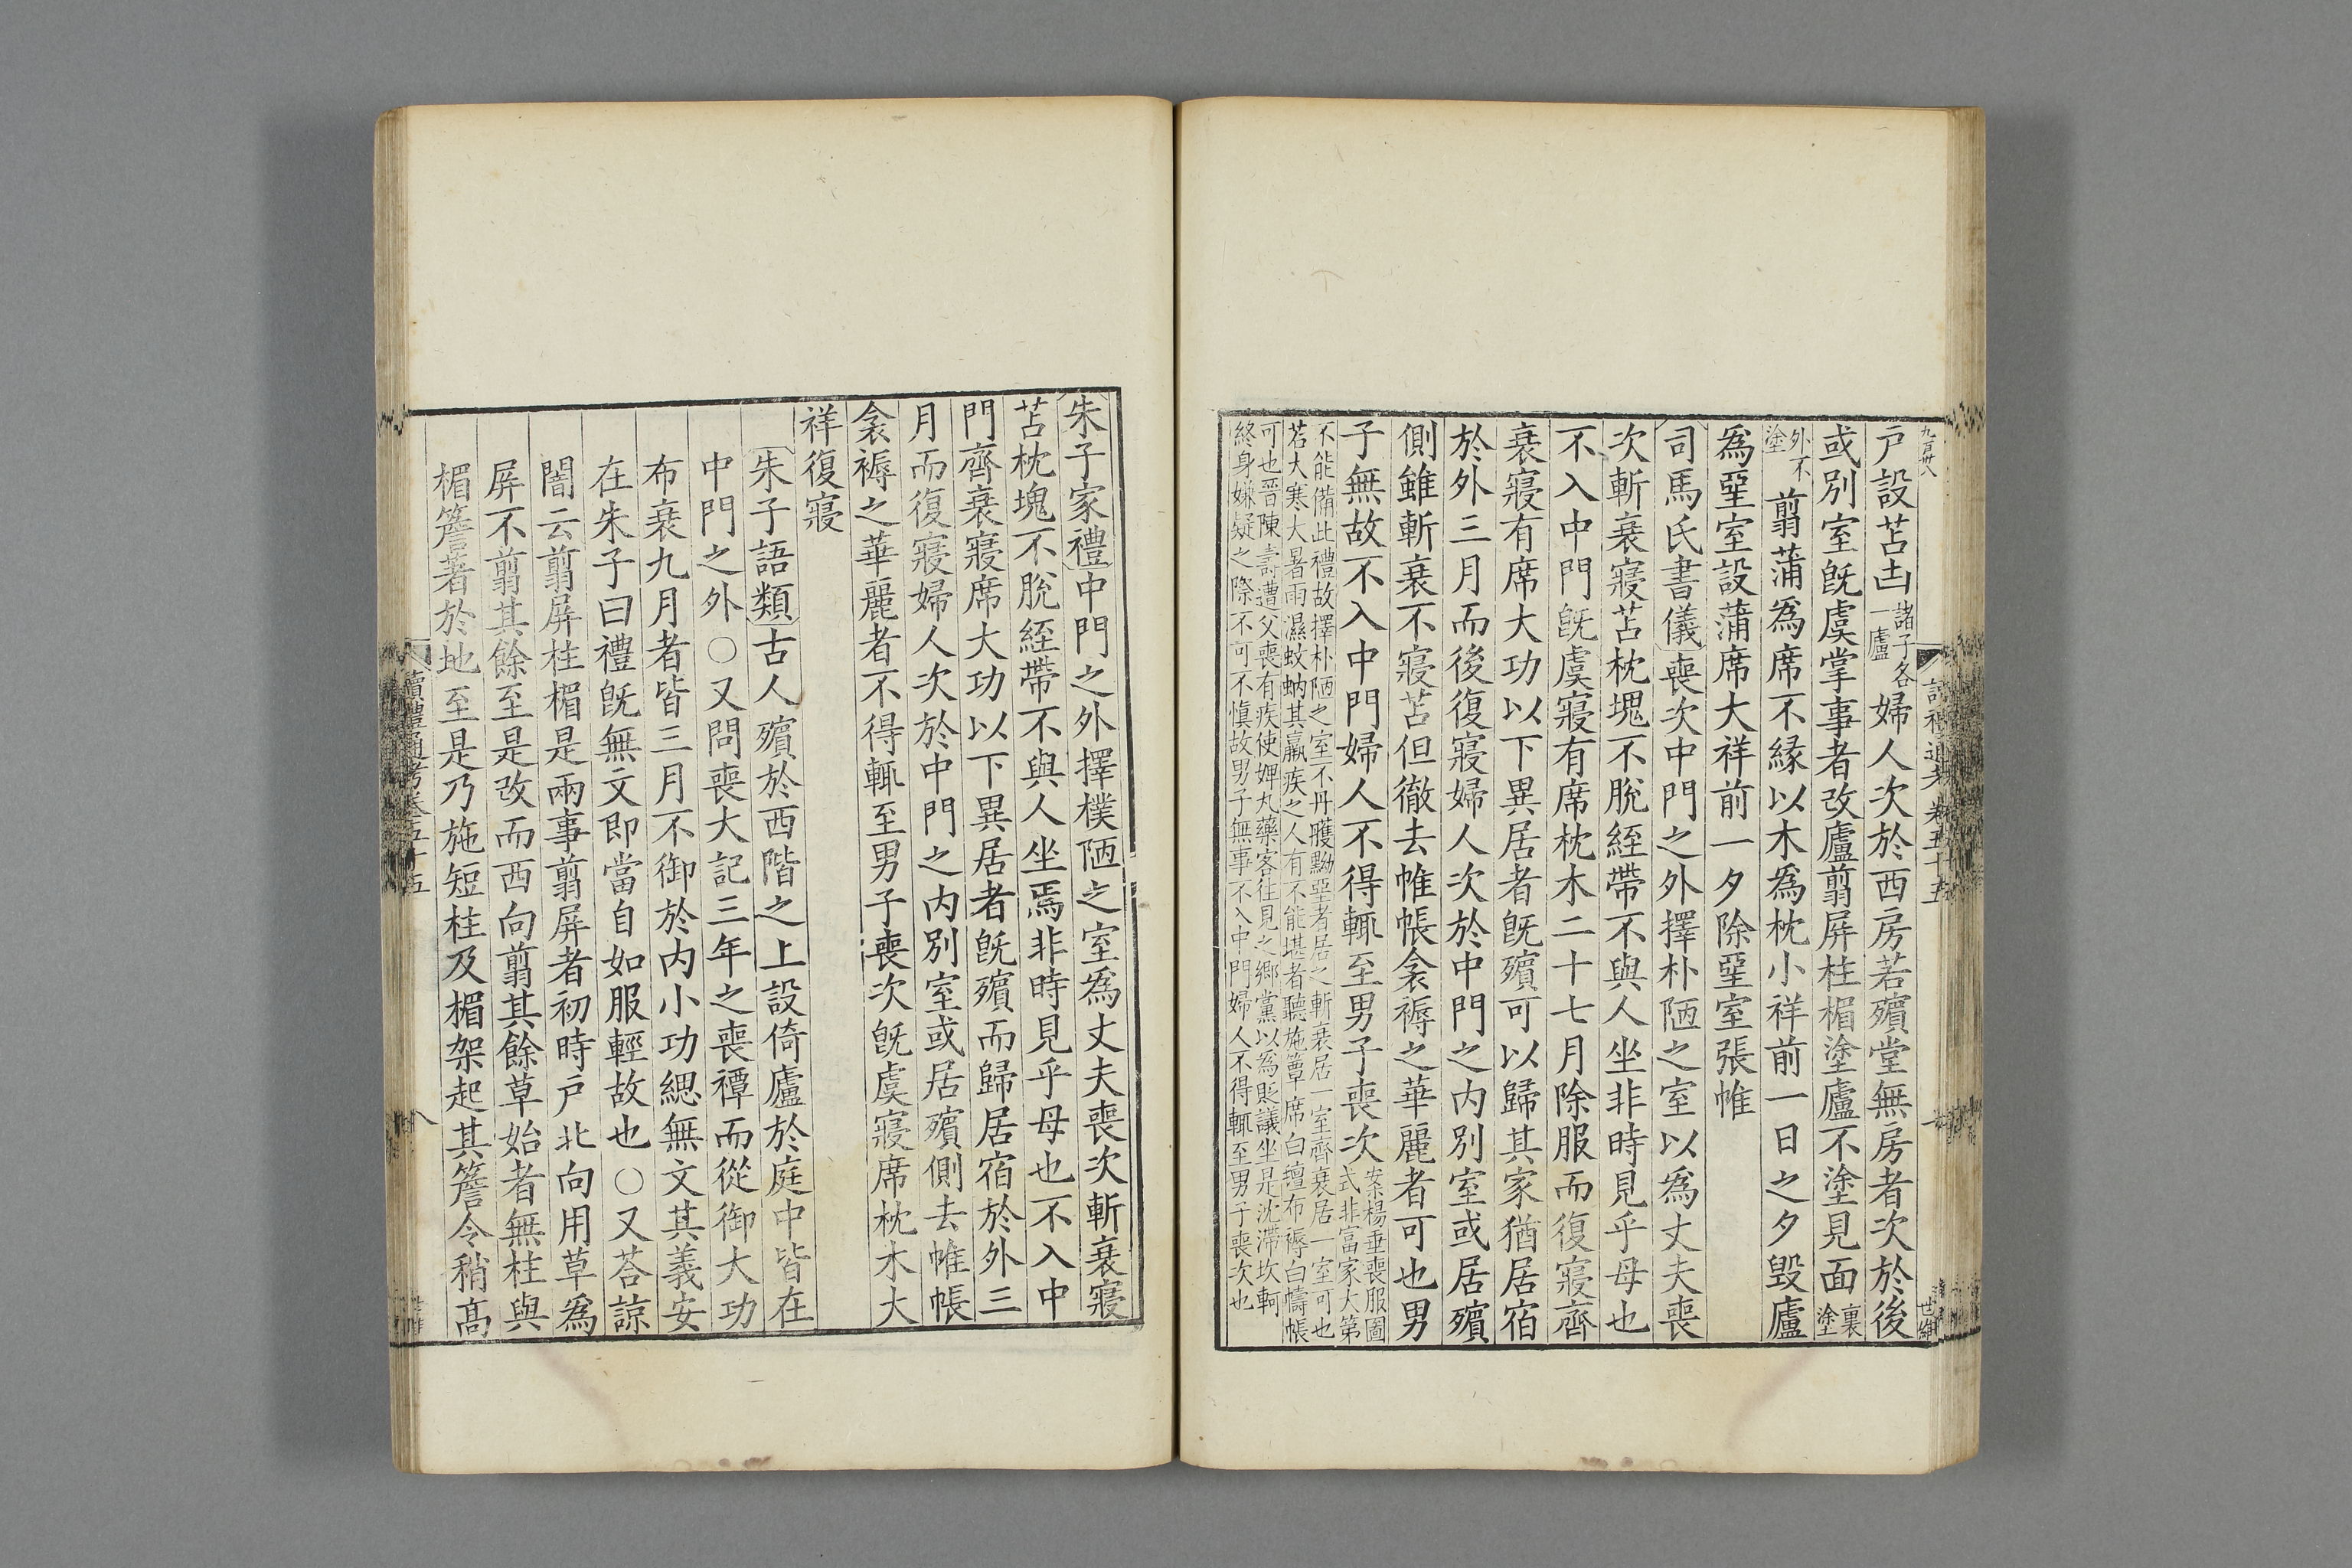 九百卅八
戸設苫凷諸子各一廬婦人次於西房若殯堂無房者次於後
或別室旣虞掌事者改廬翦屏柱楣塗廬不塗見面裏塗
外不塗翦蒲爲席不縁以木爲枕小祥前一日之夕毀廬
爲堊室設蒲席大祥前一夕除堊室張帷
司馬氏書儀喪次中門之外擇朴陋之室以爲丈夫喪
次斬衰寢苫枕塊不脫絰帶不與人坐非時見乎母也
不入中門旣虞寢有席枕木二十七月除服而復寢齊
衰寢有席大功以下異居者旣殯可以歸其家猶居宿
於外三月而後復寢婦人次於中門之内別室或居殯
側雖斬衰不寢苫但徹去帷帳衾褥之華麗者可也男
子無故不入中門婦人不得輒至男子喪次案楊垂喪服圖式非富家大第
不能備此禮故擇朴陋之室不丹雘黝堊者居之斬衰居一室齊衰居一室可也
若大寒大暑雨濕蚊蚋其羸疾之人有不能堪者聽施簟席白氊布褥白幬帳
可也晉陳壽遭父喪有疾使婢丸藥客往見之鄉黨以爲貶議坐是沈滯坎軻
終身嫌疑之際不可不愼故男子無事不入中門婦人不得輒至男子喪次也
朱子家禮中門之外擇樸陋之室爲丈夫喪次斬衰寢
苫枕塊不脫絰帶不與人坐焉非時見乎母也不入中
門齊衰寢席大功以下異居者旣殯而歸居宿於外三
月而復寢婦人次於中門之内別室或居殯側去帷帳
衾褥之華麗者不得輒至男子喪次旣虞寢席枕木大
祥復寢
朱子語類古人殯於西階之上設倚廬於庭中皆在
中門之外○又問喪大記三年之喪禫而從御大功
布衰九月者皆三月不御於内小功緦無文其義安
在朱子曰禮旣無文即當自如服輕故也○又荅諒
闇云翦屏柱楣是兩事翦屏者初時戸北向用草爲
屏不翦其餘至是改而西向翦其餘草始者無柱與
楣簷著於地至是乃施短柱及楣架起其簷令稍高
讀禮通考卷五十五
八